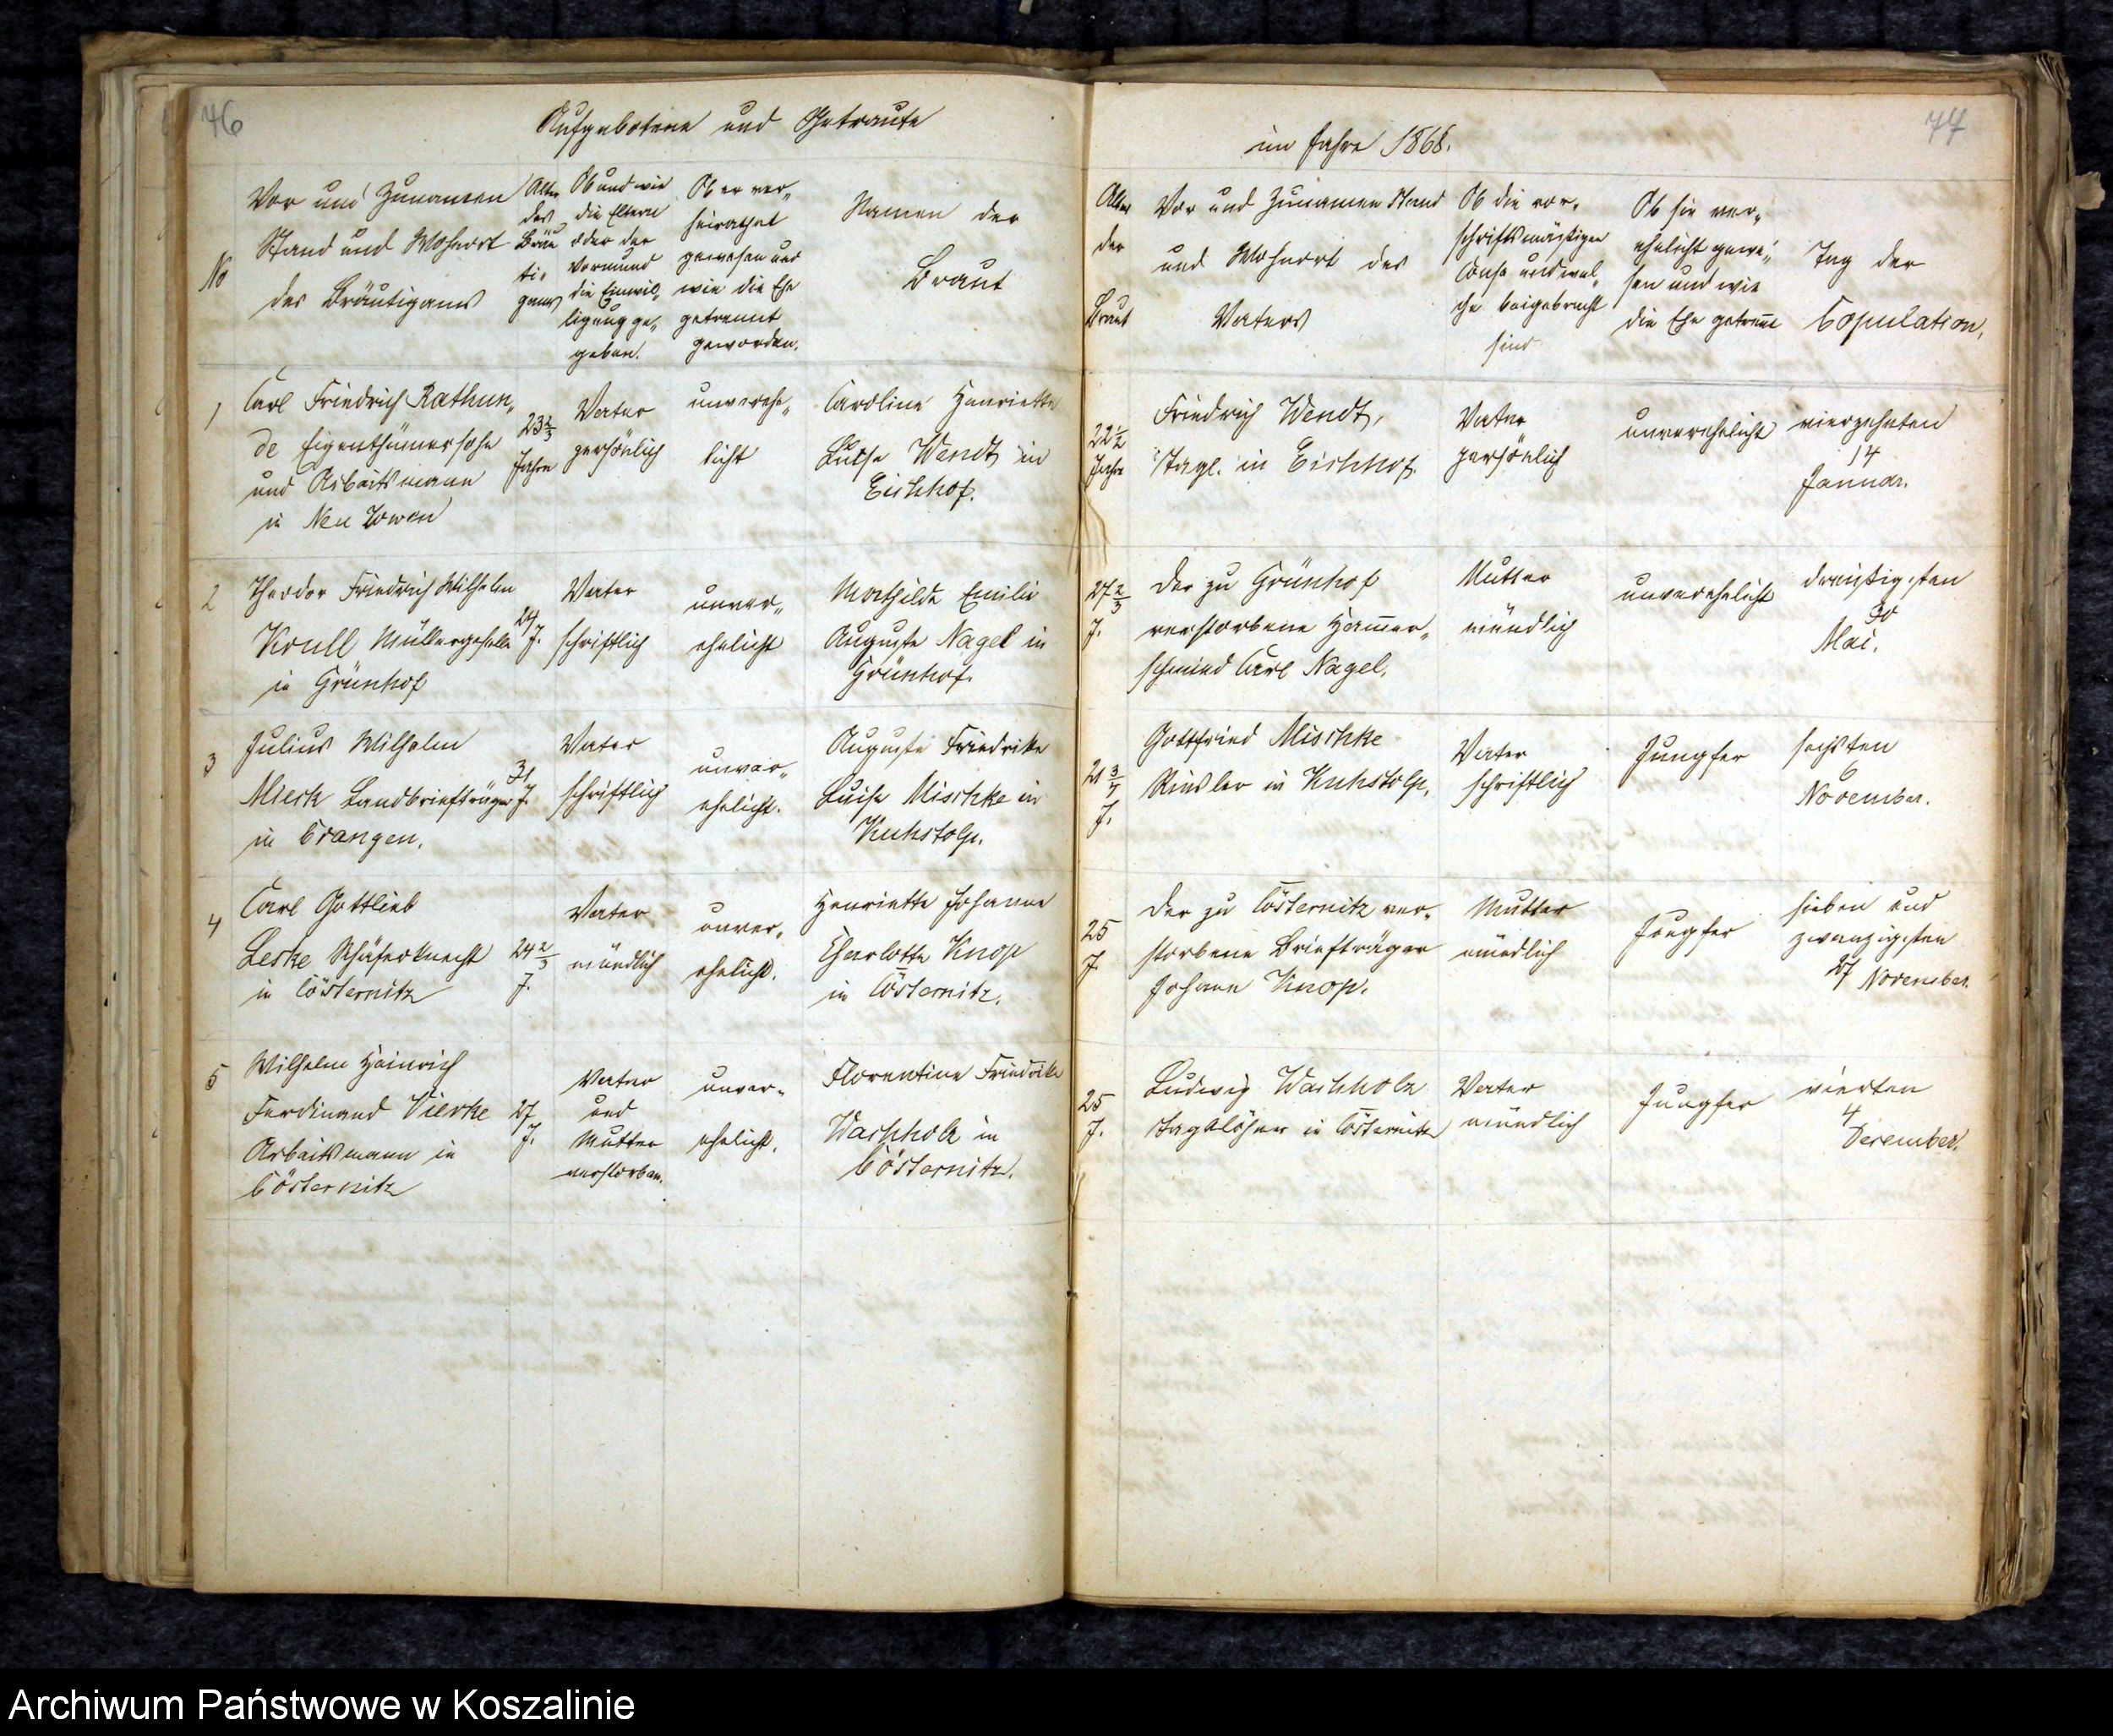 46
Aufgebotene und Getraute
No
Vor und Zunamen
Stand und Wohnort
des Bräutigams
Alter
des
Bräu
ti-
gams
Ob und wie
die Eltern
oder der
Vormund
die Einwil-
ligung ge-
geben.
Ob er ver-
heirathet
gewesen und
wie die Ehe
getrennt
geworden.
Namen der
Braut
1
Carl Friedrich Rathun-
de Eigenthümersohn
und Arbeitsmann
in Neu Zowen
23 2/3
Jahre
Vater
persönlich
unverehe-
licht
Caroline Henriette
Luise Wendt in
Eichhof.
2
Theodor Friedrich Wilhelm
Krull Müllergeselle
in Grünhof
24
J.
Vater
schriftlich
unver-
ehelicht
Mathilde Emilie
Auguste Nagel in
Grünhof.
3
Julius Wilhelm
Mierk Landbriefträger
in Crangen.
31
J.
Vater
schriftlich
unver-
ehelicht.
Auguste Friedrike
Luise Mischke in
Kuhstolp.
4
Carl Gottlieb
Leske Schäferknecht
in Cösternitz
24 2/3
J.
Vater
mündlich
unver-
ehelicht.
Henriette Johanne
Charlotte Knop
in Cösternitz.
5
Wilhelm Heinrich
Ferdinand Vierke
Arbeitsmann in
Cösternitz
27
J.
Vater
und
Mutter
verstorben.
unver-
ehelicht.
Florentine Friedrike
Wachholz in
Cösternitz.
77
im Jahre 1868.
Alter
der
Braut
Vor und Zunamen Stand
und Wohnort des
Vaters
Ob die vor-
schriftsmäßigen
Conse und wel-
che beigebracht
sind
Ob sie ver-
ehelicht gewe-
sen und wie
die Ehe getrennt
Tag der
Copulation.
22 1/2
Jahre
Friedrich Wendt,
Tagl. in Eichhof.
Vater
persönlich
unverehelicht
vierzehnten
14
Januar.
27 2/3
J.
Der zu Grünhof
verstorbene Hammer-
schmied Carl Nagel.
Mutter
mündlich
unverehelicht
dreißigsten
30
Mai.
21 3/4
J.
Gottfried Mischke
in Kuhstolp.
Vater
schriftlich
Jungfer
sechsten
6
November.
25
J.
Der zu Cösternitz ver-
storbene Briefträger
Johann Knop.
Mutter
mündlich
Jungfer
sieben und
zwanzigsten
27 November.
25
J.
Ludwig Wachholz
Tagelöhner in Cösternitz
Vater
mündlich
Jungfer
vierten
4
December.
Archiwum Państwowe w Koszalinie